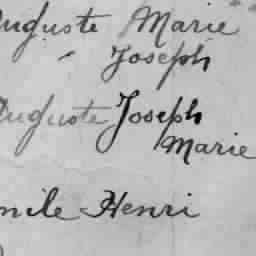 Auguste Marie
Joseph
Auguste Joseph
Marie
mile Henri